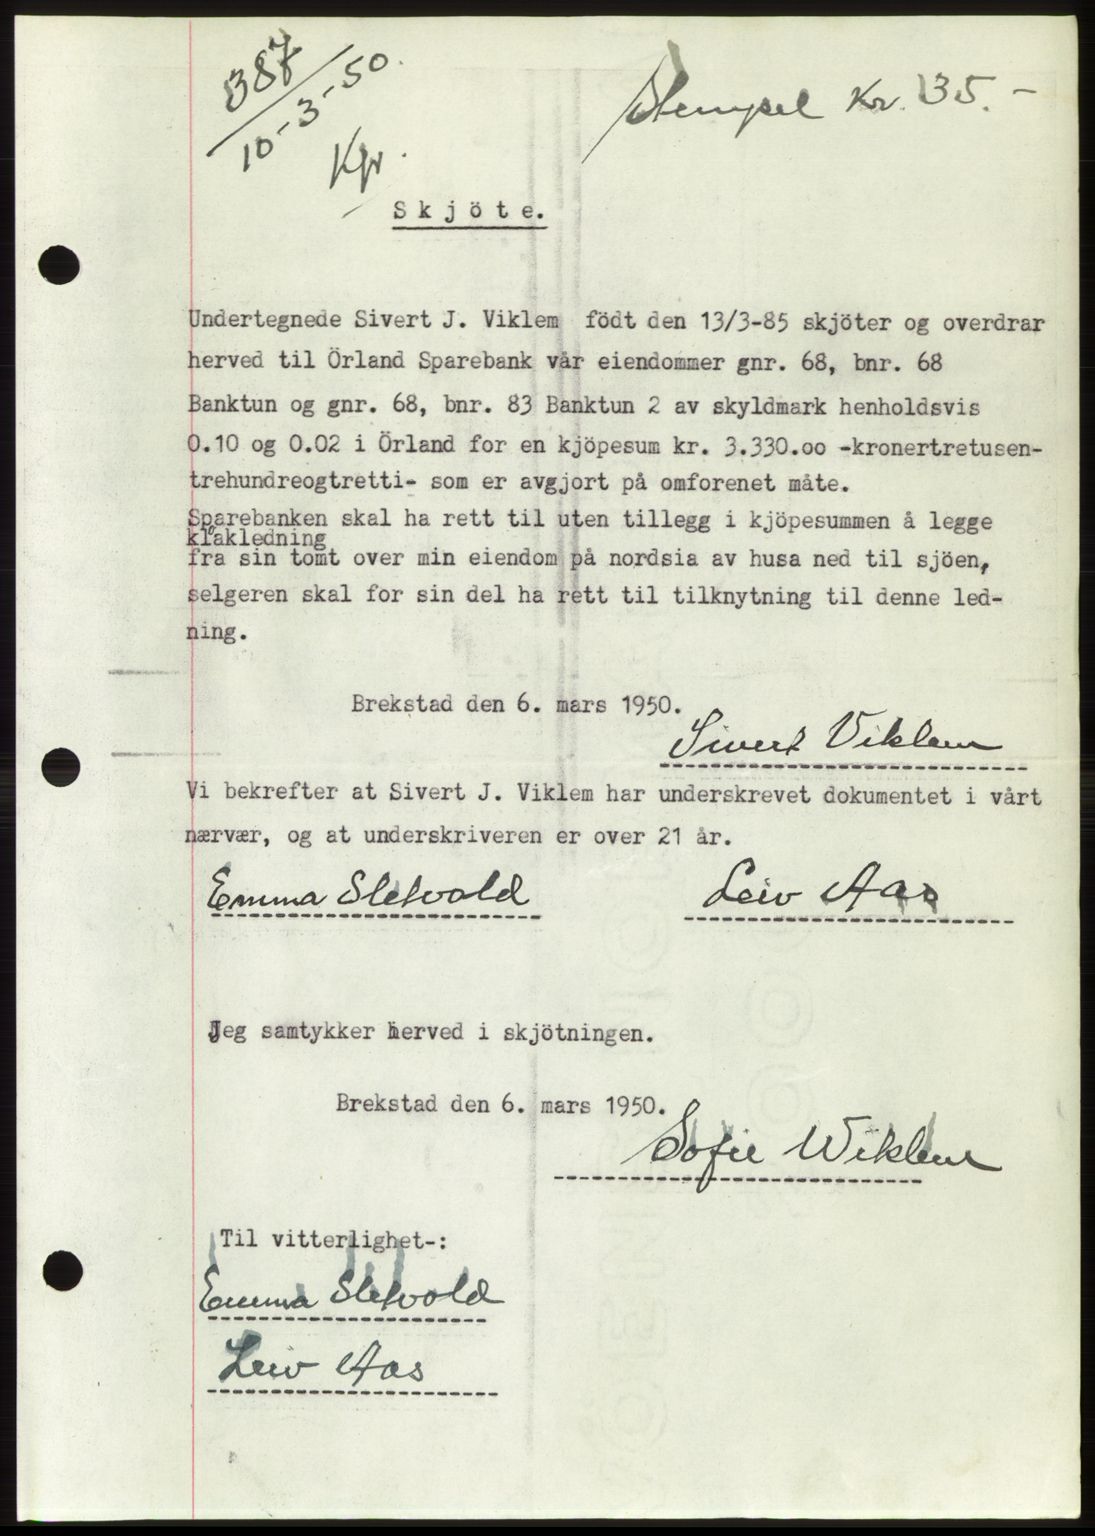 387
10-3-50.
Stempel Kr. 35.-
Skjöte.
Undertegnede Sivert J. Viklem födt den 13/3-85 skjöter og overdrar
herved til Örland Sparebank vår eiendommer gnr. 68, bnr. 68
Banktun og gnr. 68, bnr. 83 Banktun 2 av skyldmark henholdsvis
0.10 og 0.02 i Örland for en kjöpesum kr. 3.330.oo -kronertretusen-
trehundreogtretti- som er avgjort på omforenet måte.
Sparebanken skal ha rett til uten tillegg i kjöpesummen å legge
kloakledning
fra sin tomt over min eiendom på nordsia av husa ned til sjöen,
selgeren skal for sin del ha rett til tilknytning til denne led-
ning.
Brekstad den 6. mars 1950.
Sivert Viklem
Vi bekrefter at Sivert J. Viklem har underskrevet dokumentet i vårt
nærvær, og at underskriveren er over 21 år.
Emma Sletvold Leiv Aas
Jeg samtykker herved i skjötningen.
Brekstad den 6. mars 1950.
Sofie Wiklem
Til vitterlighet-:
Emma Sletvold
Leiv Aas